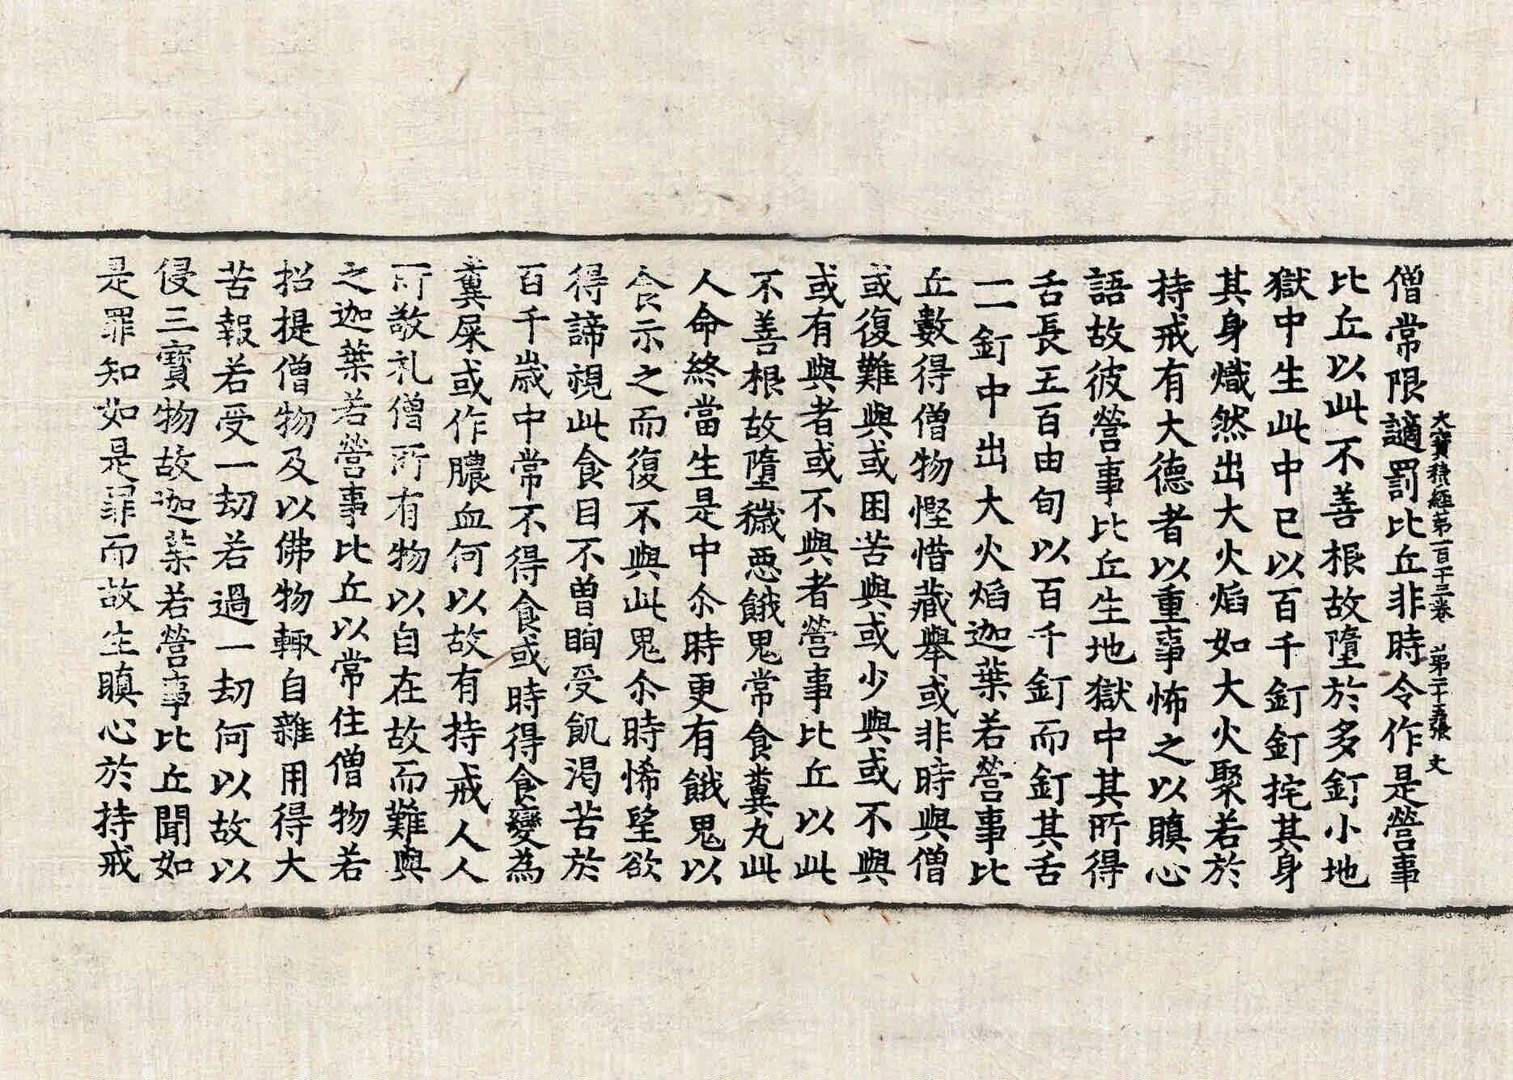 大寶積經第一百十三卷 第二十五張 文
僧常限謫罰比丘非時令作是營事
比丘以此不善根故墮於多釘小地
獄中生此中已以百千釘釘挓其身
其身熾然出大火焰如大火聚若於
持戒有大德者以重事怖之以瞋心
語故彼營事比丘生地獄中其所得
舌長五百由旬以百千釘而釘其舌
一一釘中出大火焰迦葉若營事比
丘數得僧物慳惜藏舉或非時與僧
或復難與或困苦與或少與或不與
或有與者或不與者營事比丘以此
不善根故墮穢惡餓鬼常食糞丸此
人命終當生是中尒時更有餓鬼以
食示之而復不與此鬼尒時悕望欲
得諦視此食目不曾眴受飢渴苦於
百千歲中常不得食或時得食變為
糞屎或作膿血何以故有持戒人人
所敬礼僧所有物以自在故而難與
之迦葉若營事比丘以常住僧物若
招提僧物及以佛物輒自雜用得大
苦報若受一劫若過一劫何以故以
侵三寶物故迦葉若營事比丘聞如
是罪知如是罪而故生瞋心於持戒